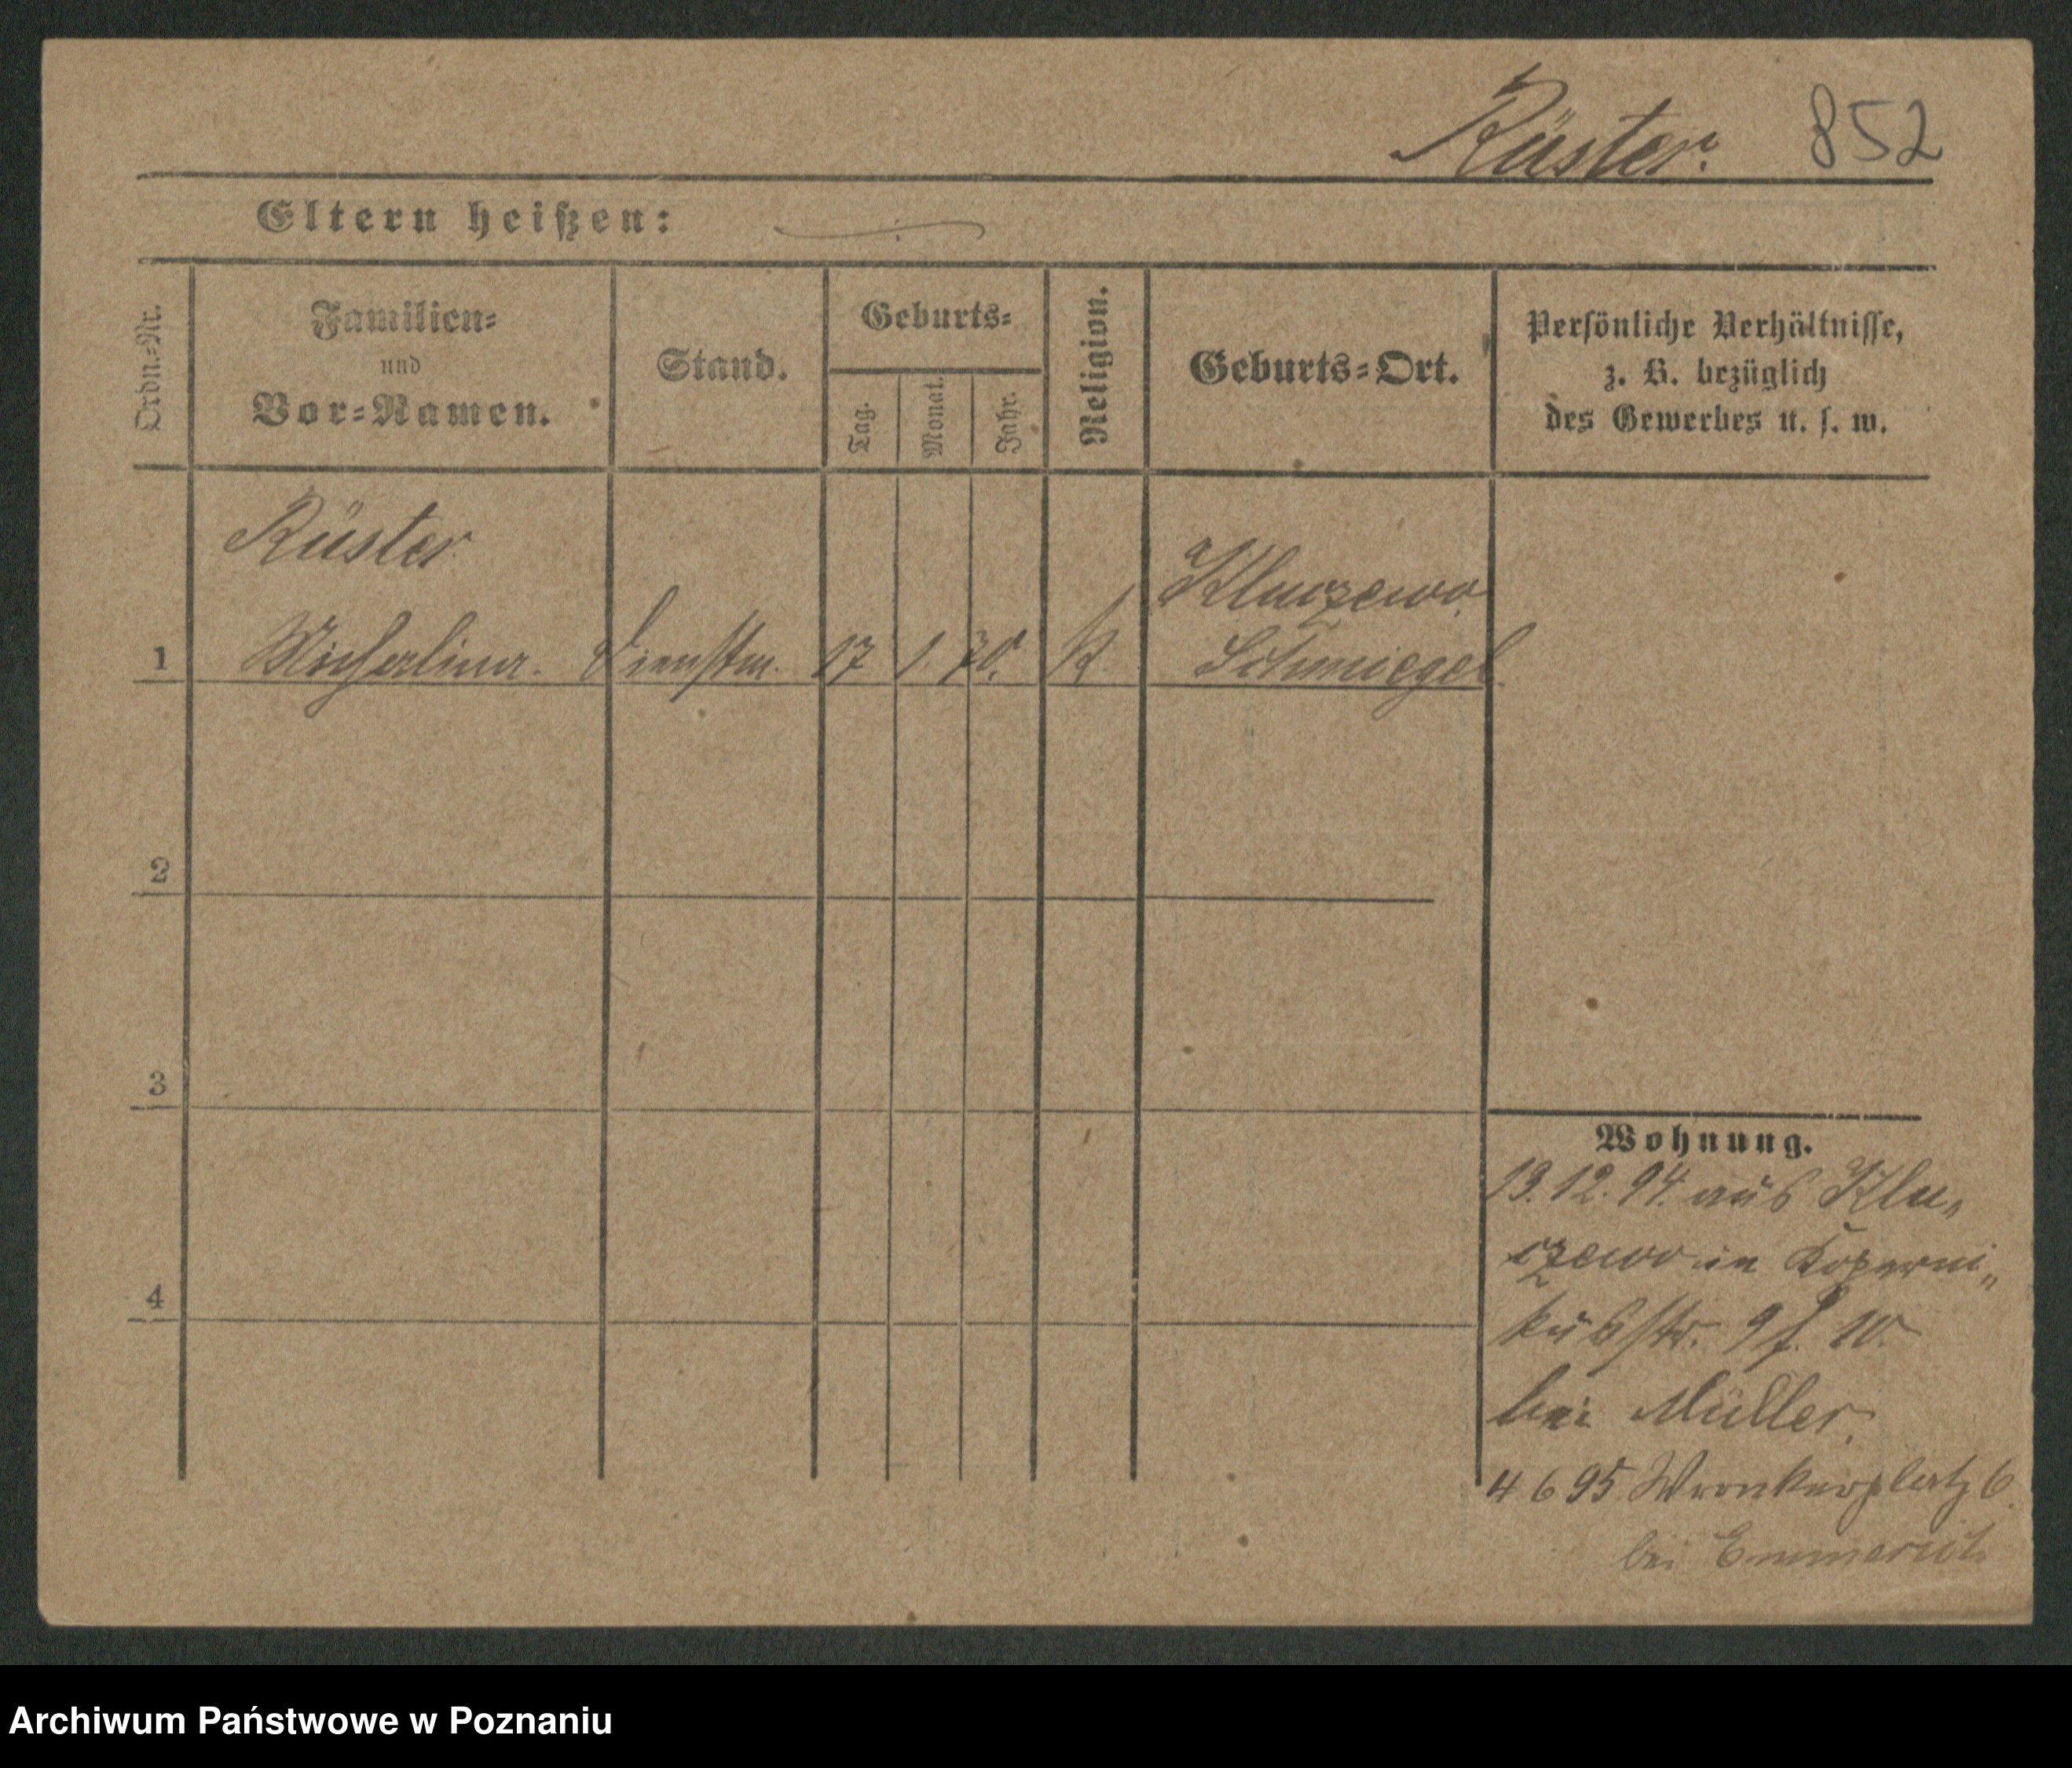 Rüster. 852
Eltern heißen:
Ordn.-Nr.
Familien-
und
Vor-Namen.
Stand.
Geburts-
Tag.
Monat.
Jahr.
Religion.
Geburts-Ort.
Persönliche Verhältnisse,
z. B. bezüglich
des Gewerbes u. s. w.
Rüster
Kluczewo
1 Michalina. Dienstm. 17 1. 70. K. Schmiegel.
2
3
4
Wohnung.
19.12.94. aus Klu„
czewo in Koperni„
kusstr. 9 f. 10.
bei Müller.
4 6 95 Wronkerplatz 6.
bei Emmerich
Archiwum Państwowe w Poznaniu